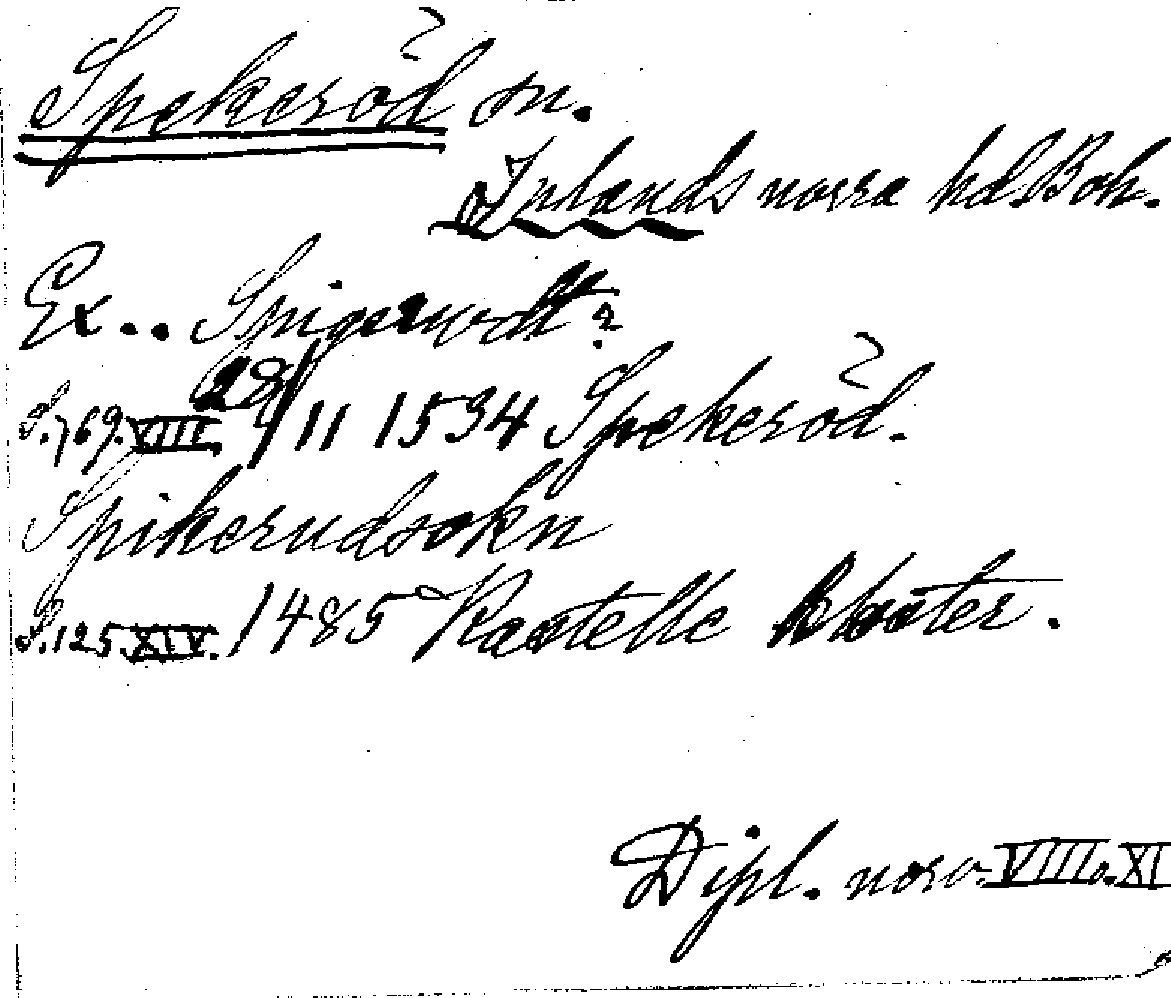 Spekeröd sn.
Inlands norra hd. Boh.
Ex.. Spigerwdt?
S.769.VIII. 28/11 1534 Spekeröd.
Spikerudsokn
S.125.XIV. 1485 Kastelle kloster.
Dipl. norv. VIII. XI